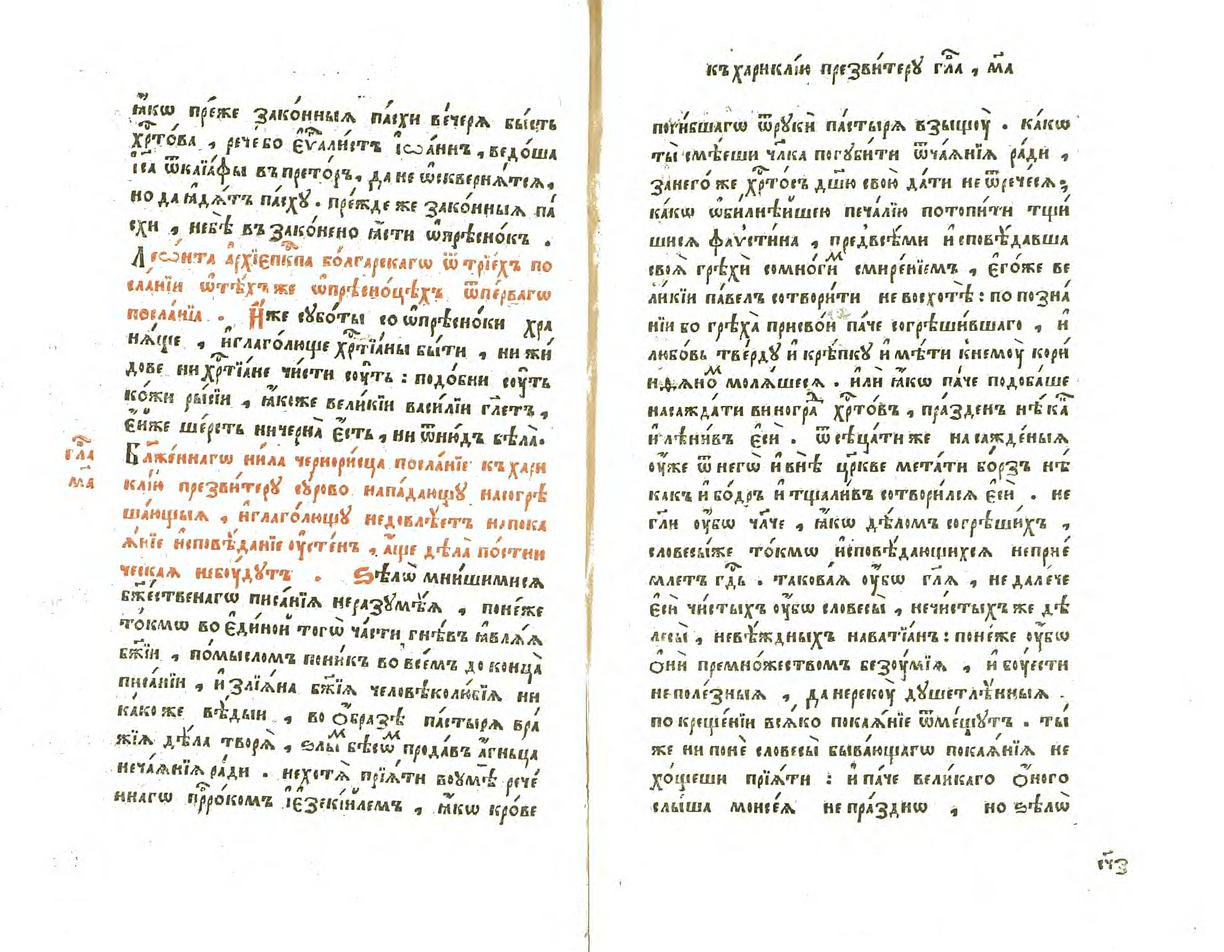 ꙗ҆́кѡ пре́же зако́нныѧ па́схи ве́черѧ бы́сть
хрⷭ҇то́ва , речебо є҆ѵⷢ҇али́стъ і҆ѡа́ннъ , ведо́ша
і҆с҃а ѿкаїа́фы въпрето́ръ , дане ѡ҆сквернѧ́тсѧ ,
но да ꙗ҆дѧ́тъ па́сху . пре́жде же зако́нныѧ па́
схи , небѣ̀ въ зако́нено ꙗ҆́сти ѡ҆прѣсно́къ .
Леѡ́нта а҆рхїепⷭ҇кпа бо́лгарскагѡ ѿ трїе́хъ по
сла́нїи ѡ҆тѣ́хъже ѡ҆прѣсно́цѣхъ ѿпе́рвагѡ
посла́нїѧ . И҆́же сꙋбо́ты со ѡ҆прѣсно́ки хра
нѧ́ще , и҆глаго́люще хрⷭ҇тїа́ны бы́ти , ни жи́
дове ни хрⷭ҇тїа́не чи́сти сꙋ́ть : подо́бни сꙋ́ть
ко́жи ры́сїи , ꙗ҆́коже вели́кїи васи́лїи гл҃етъ ,
є҆йже ше́рсть ничерна̀ є҆́сть , ни ѿню́дъ бѣла̀ .
гл҃а
м҃а
Бл҃же́ннагѡ ни́ла чернори́сца посла́нїе къ хари
клі́ю презви́терꙋ сꙋ́рово напа́дающꙋ насогрѣ
ша́ющыѧ , и҆глаго́лющꙋ недовлѣ́етъ напока
ѧ́нїе и҆сповѣ́данїе оу҆сте́нъ , а҆́ще дѣла̀ по́стни
ческаѧ небꙋ́дꙋтъ . Ѕѣлѡ̀ мни́шимисѧ
бж҃е́ственагѡ писа́нїѧ неразꙋмѣ́ѧ , поне́же
то́кмѡ во є҆ди́ной тогѡ̀ ча́сти гнѣ́въ ꙗ҆влѧ́ѧ
бж҃їи , по́мысломъ пони́къ во все́мъ до конца̀
писа́нїи , и҆злїѧ́на бж҃їѧ человѣколю́бїѧ ни
ка́ко же вѣ́дыи , во ѻ҆́бразѣ па́стырѧ вра́
жїѧ дѣ́ла творѧ̀ , ѕлы́ⷨ бѣсѡ́ⷨ прода́въ а҆́гньца
неча́ѧнїѧ ра́ди . нехотѧ̀ прїѧ́ти воумѣ̀ рече́
ннагѡ прⷪ҇ро́комъ і҆езекі́илемъ , ꙗ҆́кѡ кро́ве
къ харикли́ю презви́терꙋ гл҃а , м҃а
поги́бшагѡ ѿрꙋкѝ па́стырѧ взыщꙋ̀ . ка́кѡ
ты̀ смѣ́еши чл҃ка погꙋби́ти ѿча́ѧнїѧ ра́ди ,
занего́же хрⷭ҇то́съ дш҃ю свою̀ да́ти не ѿрече́сѧ ;
ка́кѡ ѡ҆би́лнѣйшею печа́лїю потопи́ти тщи́
шисѧ фаѵсти́на , предвсѣ́ми и҆сповѣ́давша
своѧ̀ грѣхѝ сомно́гиⷨ смире́нїемъ , є҆го́же ве
ли́кїи па́велъ сотвори́ти не восхотѣ̀ : по позна́
нїи бо грѣха̀ присвоѝ па́че согрѣши́вшаго , и҆
любо́вь тве́рдꙋ и҆ крѣ́пкꙋ и҆мѣ́ти кнемꙋ̀ кори́
нѳѧ́ноⷨ молѧ́шесѧ . и҆лѝ ꙗ҆́кѡ па́че подоба́ше
насажда́ти виногра́ⷣ хрⷭ҇то́въ , пра́зденъ нѣ́каⷦ҇
и҆лѣни́въ є҆сѝ . ѿсѣца́ти же насажде́ныѧ
оу҆́же ѿ негѡ̀ и҆ внѣ̀ цр҃кве мета́ти бо́рзъ нѣ́
какъ и҆ бо́дръ и҆ тщали́въ сотвори́лсѧ є҆сѝ . не
гл҃и оу҆́бѡ чл҃че , ꙗ҆́кѡ дѣ́ломъ согрѣши́хъ ,
словесы́же то́кмѡ и҆сповѣ́дающихсѧ непрїе́
млетъ гдⷭ҇ь . такова́ѧ оу҆́бѡ гл҃ѧ , не дале́че
є҆сѝ чи́стыхъ оу҆́бѡ словесы̀ , нечи́стыхъ же дѣ́
лесы̀ , невѣ́ждныхъ навати́ѧнъ : поне́же оу҆́бѡ
ѻ҆́ни премно́жествомъ безꙋ́мїѧ , и҆ бꙋ́ести
неполе́зныѧ , да нерекꙋ̀ дꙋшетлѣ́нныѧ .
по креще́нїи всѧ́ко покаѧ́нїе ѿме́щꙋтъ . ты́
же ни понѐ словесы̀ быва́ющагѡ покаѧ́нїѧ не
хо́щеши прїѧ́ти : и҆ па́че вели́каго ѻ҆́ного
слы́ша моисе́ѧ не пра́зднѡ , но ѕѣлѡ̀